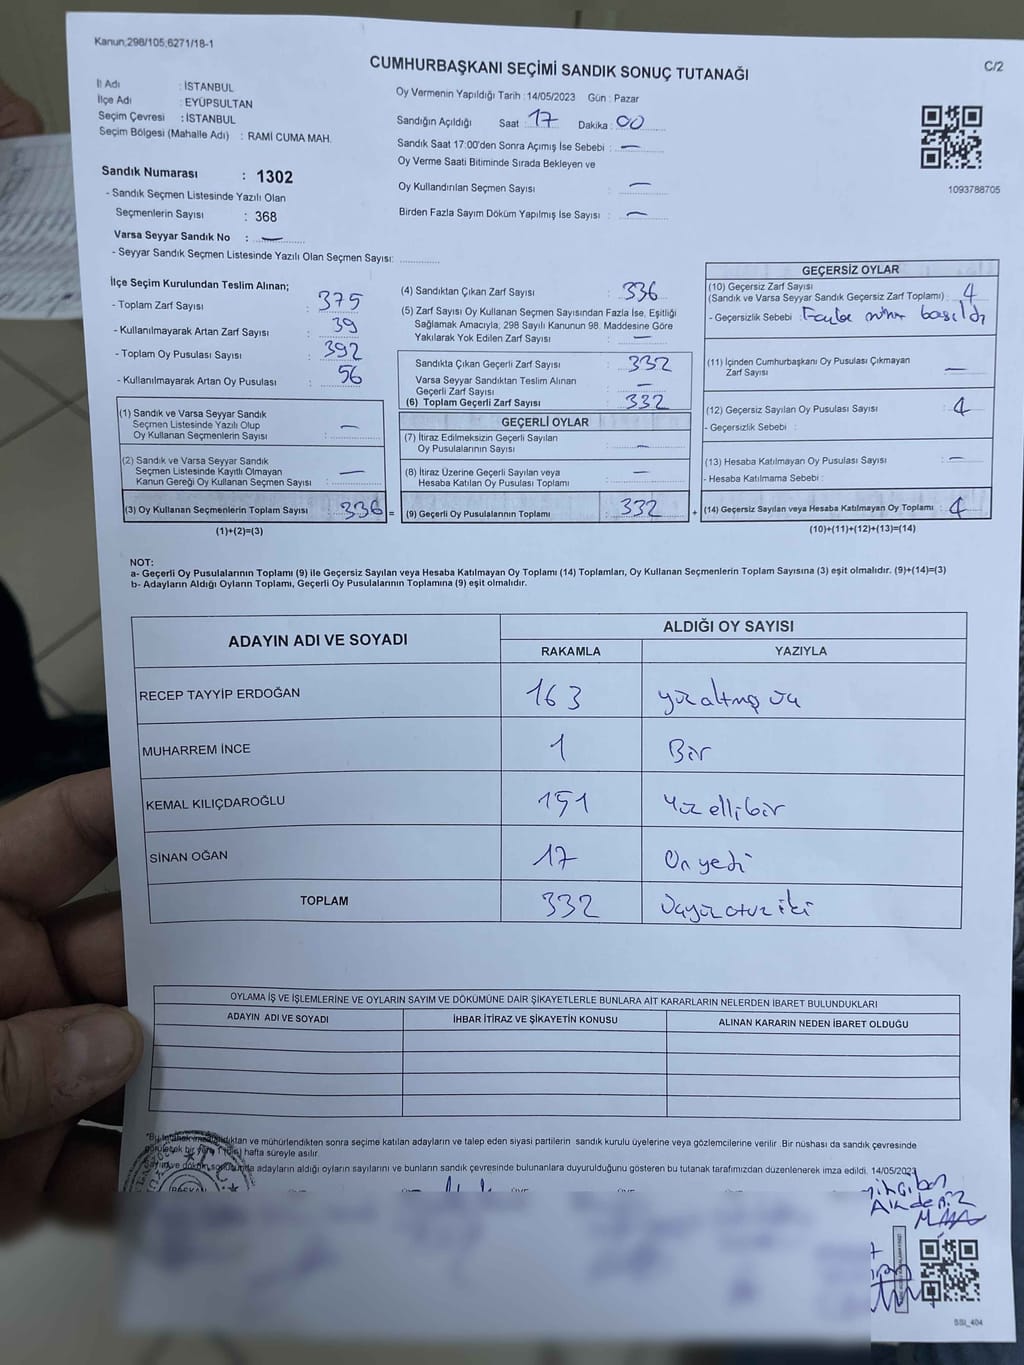 Kanun;298/105;6271/18-1
C/2
CUMHURBAŞKANI SEÇİMİ SANDIK SONUÇ TUTANAĞI
İl Adı : İSTANBUL
İlçe Adı : EYÜPSULTAN
Seçim Çevresi : İSTANBUL
Seçim Bölgesi (Mahalle Adı) : RAMİ CUMA MAH.
Oy Vermenin Yapıldığı Tarih : 14/05/2023 Gün : Pazar
Sandığın Açıldığı Saat : 17 Dakika : 00
Sandık Saat 17:00'den Sonra Açımış İse Sebebi : —
Oy Verme Saati Bitiminde Sırada Bekleyen ve
Oy Kullandırılan Seçmen Sayısı : —
Birden Fazla Sayım Döküm Yapılmış İse Sayısı : —
1093788705
Sandık Numarası : 1302
- Sandık Seçmen Listesinde Yazılı Olan
Seçmenlerin Sayısı : 368
Varsa Seyyar Sandık No : —
- Seyyar Sandık Seçmen Listesinde Yazılı Olan Seçmen Sayısı:
İlçe Seçim Kurulundan Teslim Alınan;
- Toplam Zarf Sayısı : 375
- Kullanılmayarak Artan Zarf Sayısı : 39
- Toplam Oy Pusulası Sayısı : 392
- Kullanılmayarak Artan Oy Pusulası : 56
(1) Sandık ve Varsa Seyyar Sandık
Seçmen Listesinde Yazılı Olup
Oy Kullanan Seçmenlerin Sayısı : —
(2) Sandık ve Varsa Seyyar Sandık
Seçmen Listesinde Kayıtlı Olmayan
Kanun Gereği Oy Kullanan Seçmen Sayısı : —
(3) Oy Kullanan Seçmenlerin Toplam Sayısı : 336 =
(1)+(2)=(3)
(4) Sandıktan Çıkan Zarf Sayısı : 336
(5) Zarf Sayısı Oy Kullanan Seçmen Sayısından Fazla İse, Eşitliği
Sağlamak Amacıyla, 298 Sayılı Kanunun 98. Maddesine Göre
Yakılarak Yok Edilen Zarf Sayısı : —
Sandıkta Çıkan Geçerli Zarf Sayısı : 332
Varsa Seyyar Sandıktan Teslim Alınan
Geçerli Zarf Sayısı : —
(6) Toplam Geçerli Zarf Sayısı : 332
GEÇERLİ OYLAR
(7) İtiraz Edilmeksizin Geçerli Sayılan
Oy Pusulalarının Sayısı : —
(8) İtiraz Üzerine Geçerli Sayılan veya
Hesaba Katılan Oy Pusulası Toplamı : —
(9) Geçerli Oy Pusulalarının Toplamı : 332 +
GEÇERSİZ OYLAR
(10) Geçersiz Zarf Sayısı
(Sandık ve Varsa Seyyar Sandık Geçersiz Zarf Toplamı) : 4
- Geçersizlik Sebebi : Fazla mühür basıldı
(11) İçinden Cumhurbaşkanı Oy Pusulası Çıkmayan
Zarf Sayısı : —
(12) Geçersiz Sayılan Oy Pusulası Sayısı : 4
- Geçersizlik Sebebi :
(13) Hesaba Katılmayan Oy Pusulası Sayısı : —
- Hesaba Katılmama Sebebi :
(14) Geçersiz Sayılan veya Hesaba Katılmayan Oy Toplamı : 4
(10)+(11)+(12)+(13)=(14)
NOT:
a- Geçerli Oy Pusulalarının Toplamı (9) ile Geçersiz Sayılan veya Hesaba Katılmayan Oy Toplamı (14) Toplamları, Oy Kullanan Seçmenlerin Toplam Sayısına (3) eşit olmalıdır. (9)+(14)=(3)
b- Adayların Aldığı Oyların Toplamı, Geçerli Oy Pusulalarının Toplamına (9) eşit olmalıdır.
ADAYIN ADI VE SOYADI
ALDIĞI OY SAYISI
RAKAMLA YAZIYLA
RECEP TAYYİP ERDOĞAN 163 yüz altmış üç
MUHARREM İNCE 1 Bir
KEMAL KILIÇDAROĞLU 151 Yüz elli bir
SİNAN OĞAN 17 On yedi
TOPLAM 332 üçyüz otuz iki
OYLAMA İŞ VE İŞLEMLERİNE VE OYLARIN SAYIM VE DÖKÜMÜNE DAİR ŞİKAYETLERLE BUNLARA AİT KARARLARIN NELERDEN İBARET BULUNDUKLARI
ADAYIN ADI VE SOYADI İHBAR İTİRAZ VE ŞİKAYETİN KONUSU ALINAN KARARIN NEDEN İBARET OLDUĞU
ve mühürlendikten sonra seçime katılan adayların ve talep eden siyasi partilerin sandık kurulu üyelerine veya gözlemcilerine verilir. Bir nüshası da sandık çevresinde
hafta süreyle asılır.
adayların aldığı oyların sayılarını ve bunların sandık çevresinde bulunanlara duyurulduğunu gösteren bu tutanak tarafımızdan düzenlenerek imza edildi. 14/05/2023
BAŞKAN
Akdeniz
SSI_404